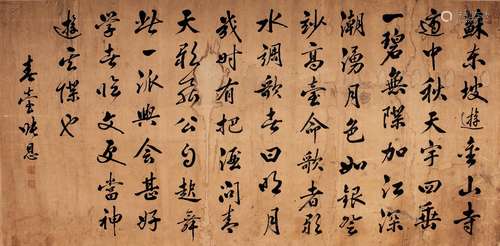 蘇東坡遊金山寺
適中秋天宇四垂
一碧無際加江深
潮湧月色如銀登
妙高臺命歌者歌
水調歌頭曰明月
幾時有把酒問青
天歌罷公自起舞
此一派興會甚好
學者臨文更當神
遊也